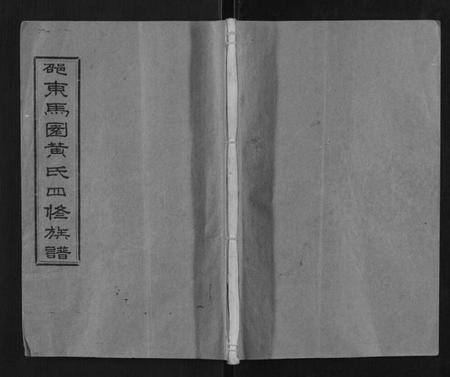 邵東馬園黃氏四修族譜